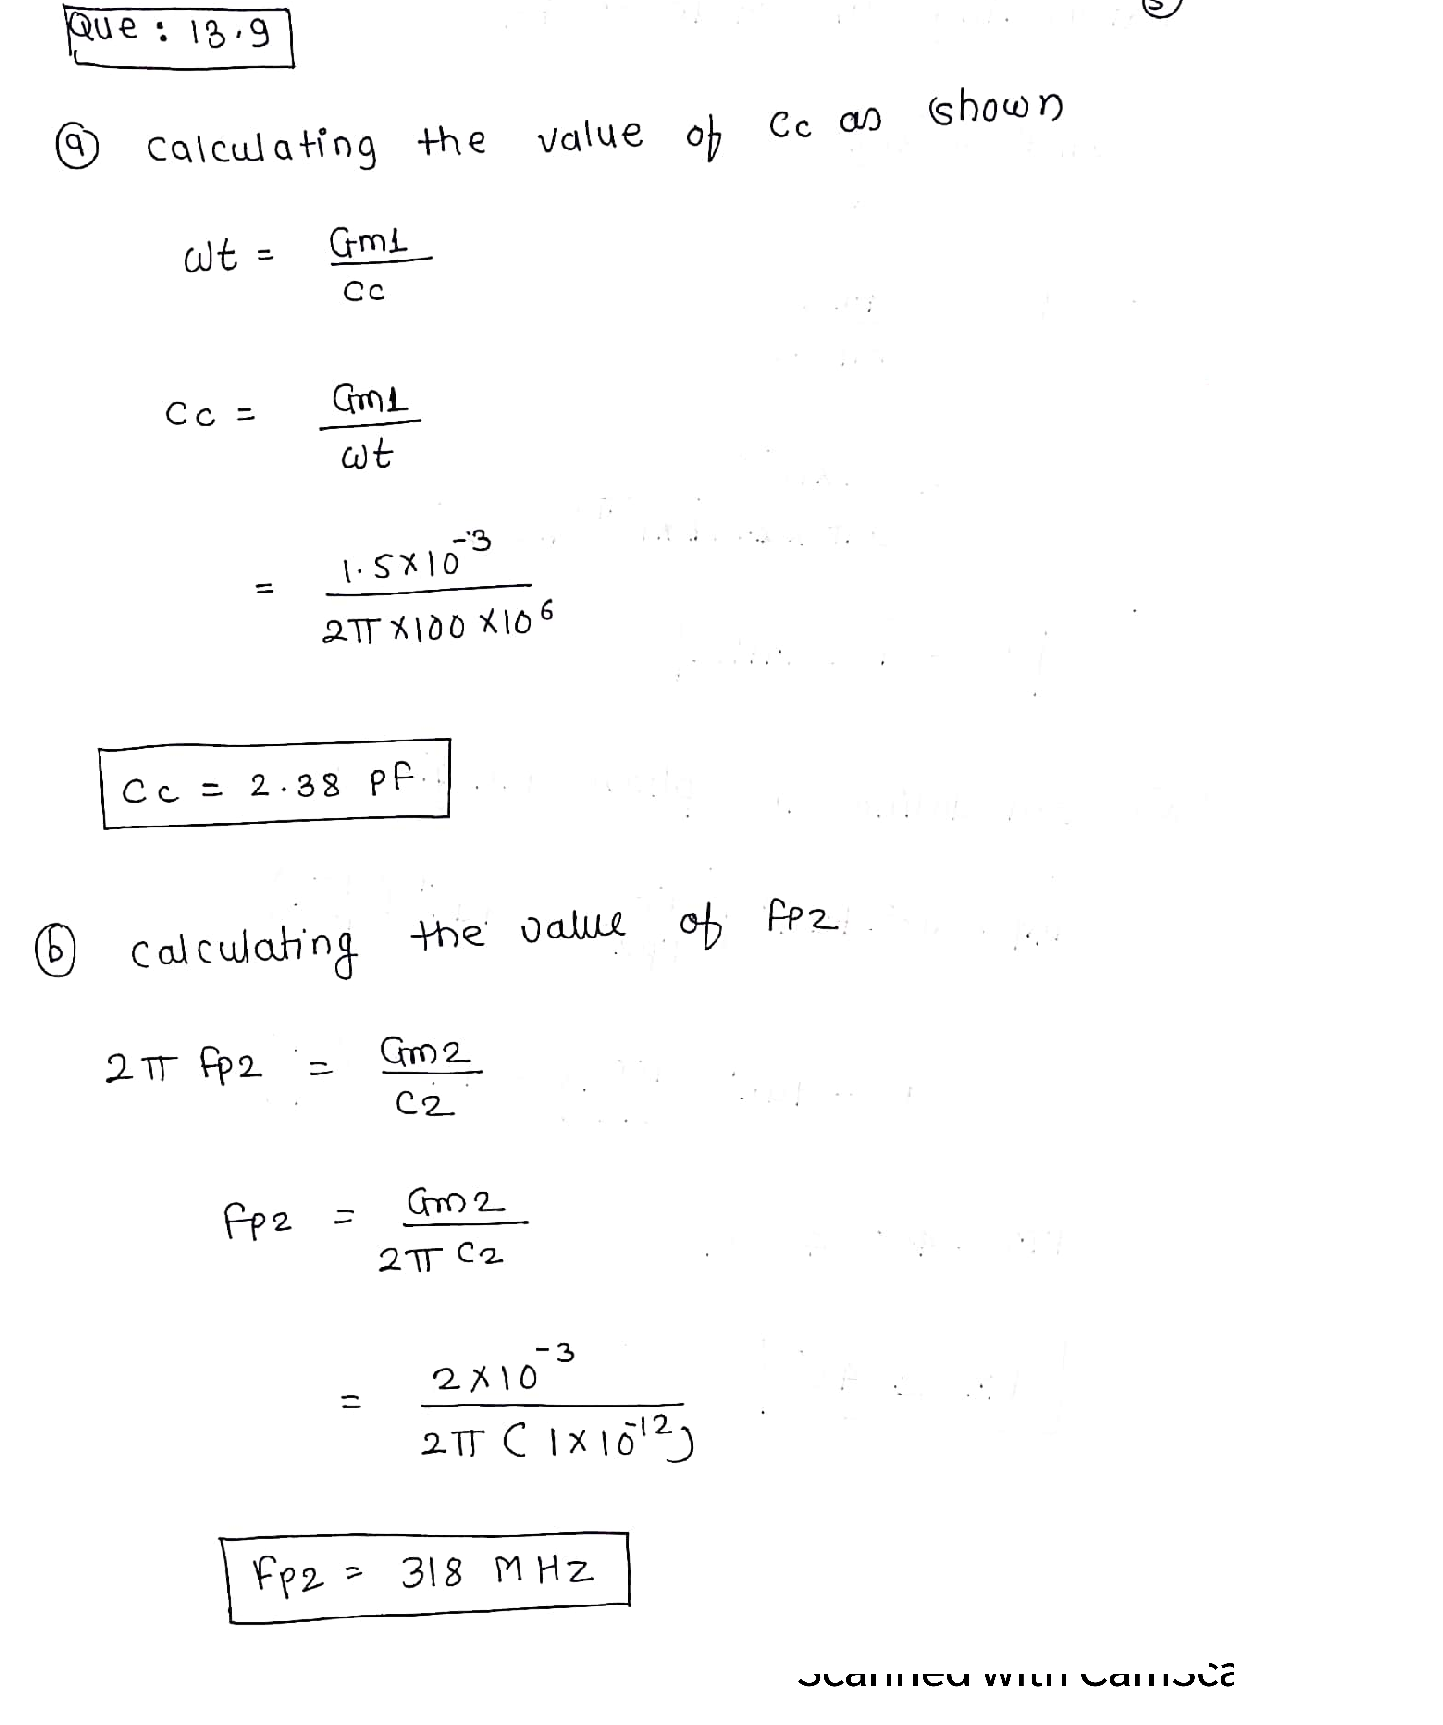 Que : 13.9
(a) calculating the value of Cc as shown
ωt = Gm1 / Cc
Cc = Gm1 / ωt
= 1.5×10^-3 / 2π×100×10^6
Cc = 2.38 pF
(b) calculating the value of fp2
2π fp2 = Gm2 / C2
fp2 = Gm2 / 2π C2
= 2×10^-3 / 2π (1×10^-12)
Fp2 = 318 MHz